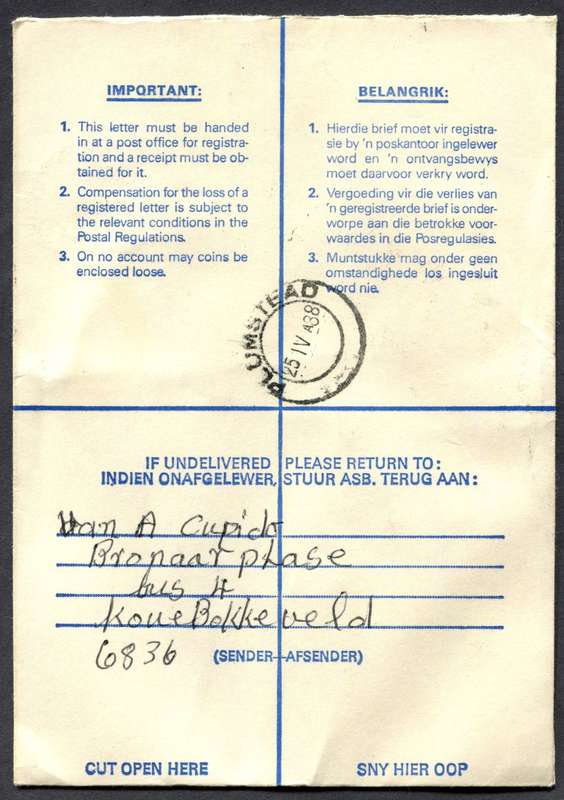 IMPORTANT:
1. This letter must be handed
in at a post office for registra-
tion and a receipt must be ob-
tained for it.
2. Compensation for the loss of a
registered letter is subject to
the relevant conditions in the
Postal Regulations.
3. On no account may coins be
enclosed loose.
BELANGRIK:
1. Hierdie brief moet vir registra-
sie by 'n poskantoor ingelewer
word en 'n ontvangsbewys
moet daarvoor verkry word.
2. Vergoeding vir die verlies van
'n geregistreerde brief is onder-
worpe aan die betrokke voor-
waardes in die Posregulasies.
3. Muntstukke mag onder geen
omstandighede los ingesluit
word nie.
PLUMSTEAD
25 IV A38
IF UNDELIVERED PLEASE RETURN TO:
INDIEN ONAFGELEWER, STUUR ASB. TERUG AAN:
Van A Cupido
Bronaar phase
bus 4
KoueBokkeveld
6836
(SENDER–AFSENDER)
CUT OPEN HERE
SNY HIER OOP